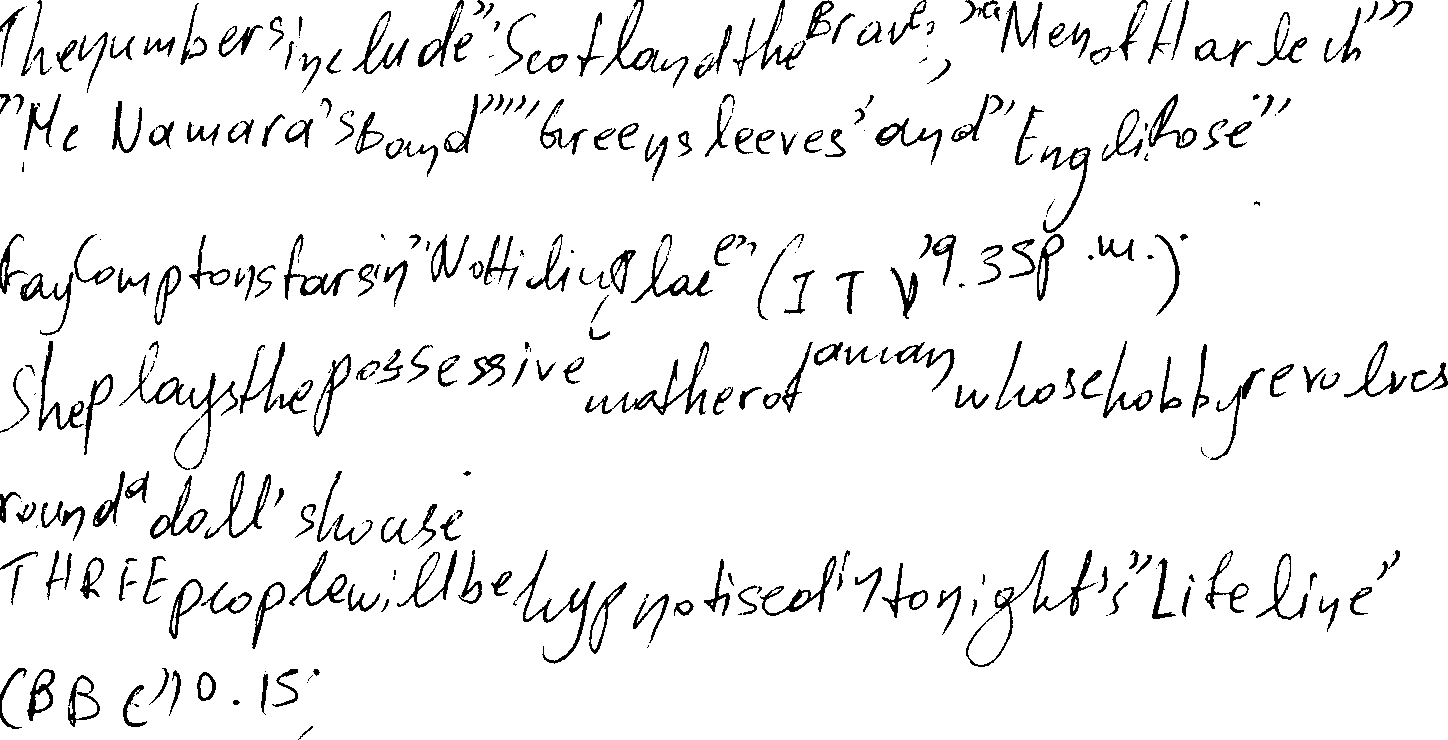 The numbers include "Scotland the Brave", "Men of Harlech"
"Mc Namara's Band" "Greensleeves" and "English Rose"
Fay Compton stars in "Notting Place" (ITV, 9.35 p.m.).
She plays the possessive mother of a man whose hobby revolves
round a doll's house
THREE people will be hypnotised in tonight's "Lifeline"
(BBC, 10.15,